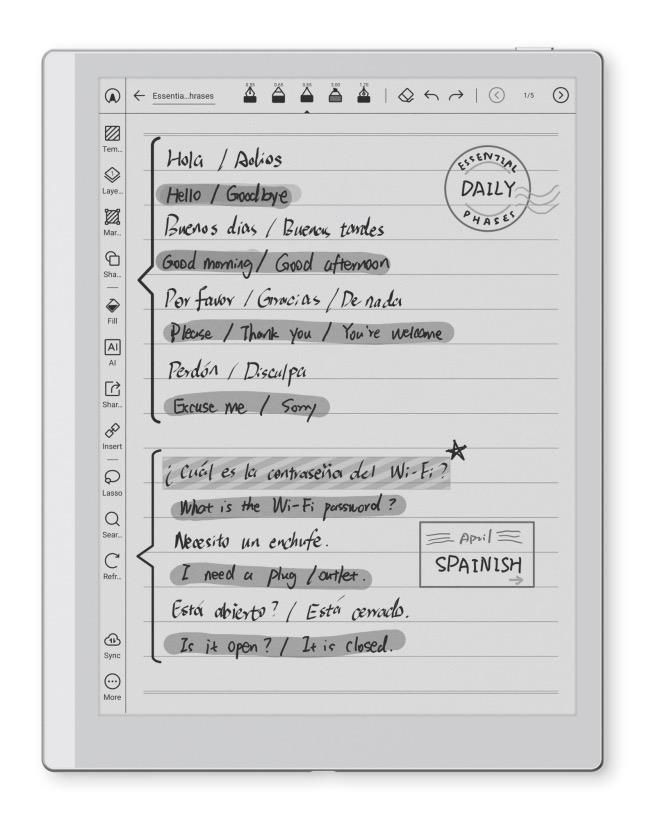 Essentia...hrases
0.35
0.65
0.65
3.00
1.20
1/5
Tem...
Laye...
Mar...
Sha...
Fill
AI
AI
Shar...
Insert
Lasso
Sear...
Refr...
Sync
More
Hola / Adios
Hello / Goodbye
Buenos dias / Buenas tardes
Good morning / Good afternoon
Por favor / Gracias / De nada
Please / Thank you / You're welcome
Perdón / Disculpa
Excuse me / Sorry
ESSENTIAL
DAILY
PHASES
¿Cuál es la contraseña del Wi-Fi?
What is the Wi-Fi password?
Necesito un enchufe.
I need a plug / outlet.
Está abierto? / Está cerrado.
Is it open? / It is closed.
April
SPAINISH